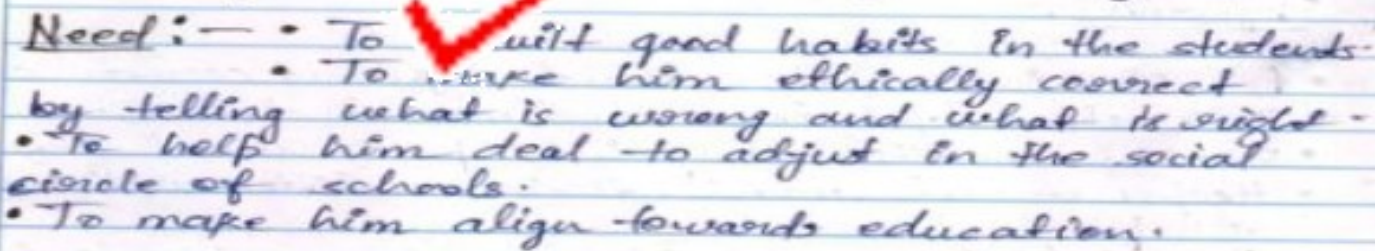 Need:- • To built good habits in the students.
• To make him ethically correct
by telling what is wrong and what is right.
• To help him deal to adjust in the social
circle of schools.
• To make him align towards education.